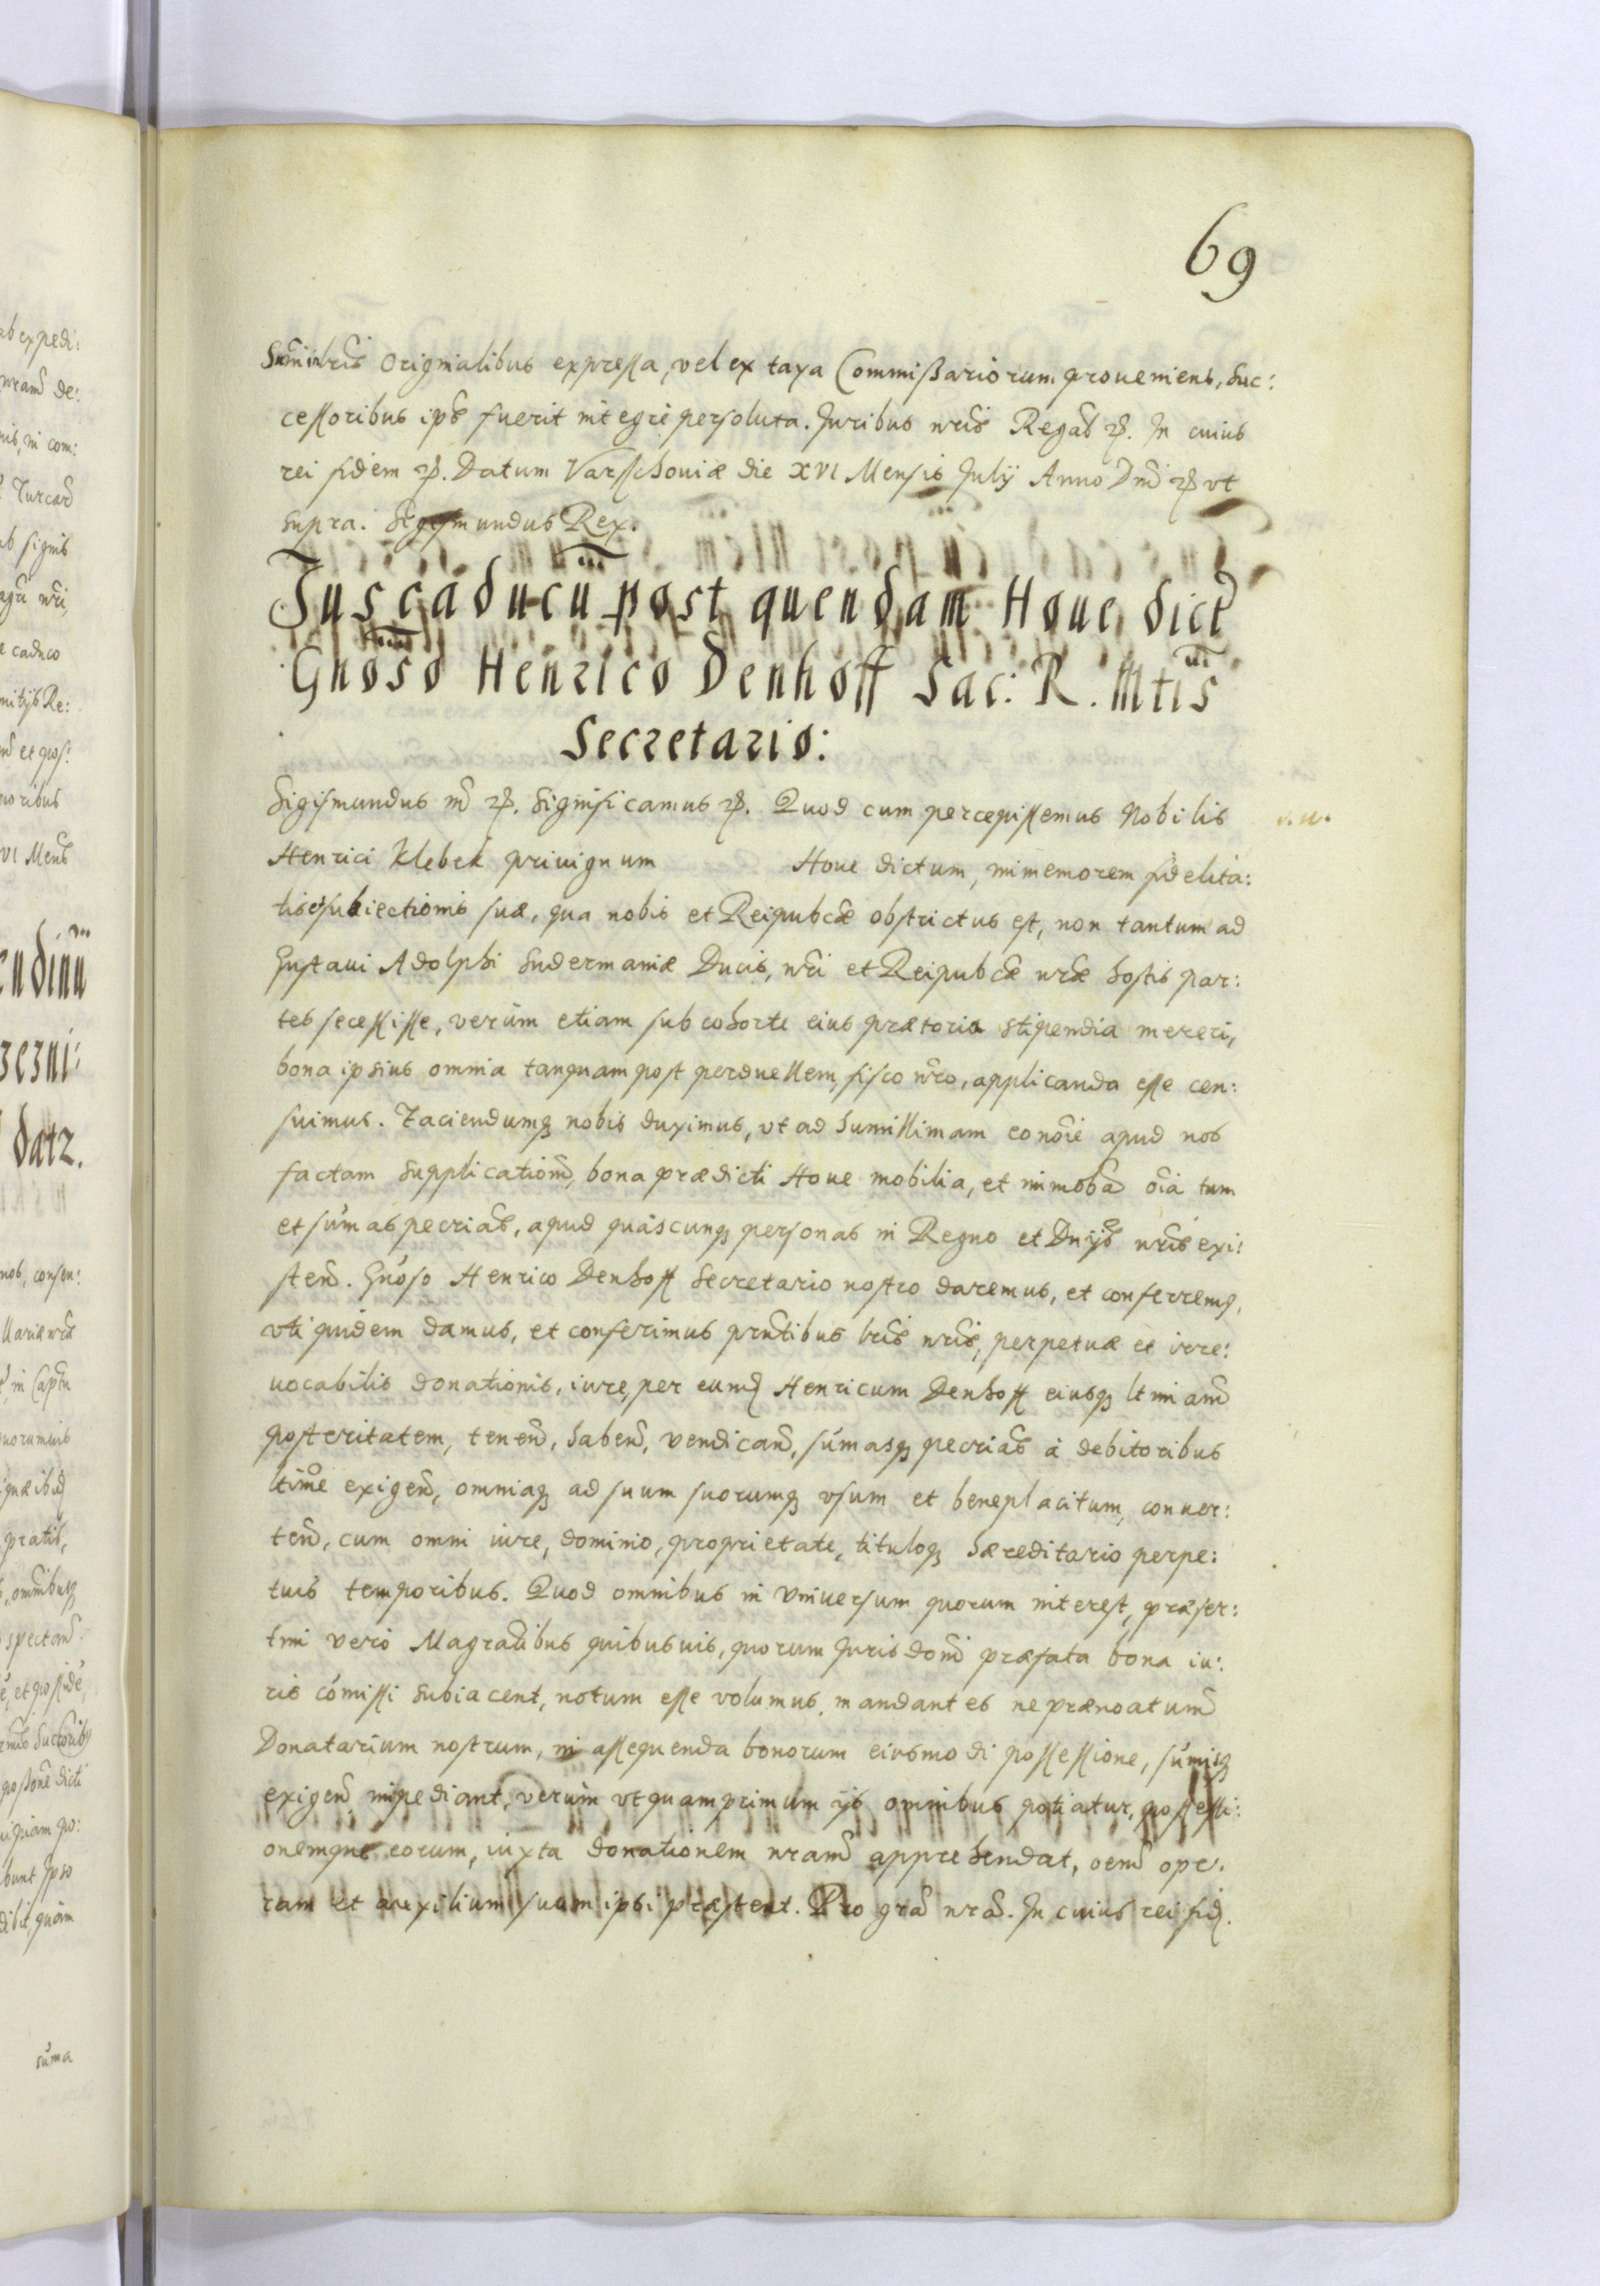 69
Originalibus expressa, vel ex taxa Commißariorum proueniens, Suc:
cessoribus ips͂ fuerit integrè persoluta. Juribus nr͂is Regal͂ ꝛc. In cuius
rei fidem ꝛc. Datum Varsschouiæ die XVI Mensis Julij Anno Dn͂i ꝛc vt
supra. Sigismundus Rex.
Jus caducū post quendam Houe dict͂
Gnoso Henrico Denhoff Sac: R. Mtis
Secretario:
Sigismundus III͂ ꝛc. Significamus ꝛc. Quod cum percepissemus Nobilis
Henrici Klebek priuignum Houe dictum, immemorem fidelita:
tis et subiectionis suæ, qua nobis et Reipubc͂æ obstrictus est, non tantum ad
Gustaui Adolphi Sudermaniæ Ducis, nr͂i et Reipubc͂æ nr͂æ hostis par:
tes secessisse, verùm etiam sub cohorte eius prætoria stipendia mereri,
bona ipsius omnia tanquam post perduellem, fisco nr͂o, applicanda esse cen:
suimus. Faciendumq; nobis duximus, vt ad humillimam eo no͂ie apud nos
factam supplication͂, bona prædicti Houe mobilia, et immob͂a o͂ia tum
et sūmas pecriās, apud quáscunq; personas in Regno et Dn͂ijs nr͂is exi:
sten͂. Gn͂oso Henrico Denhoff Secretario nostro daremus, et conferremq;,
vti quidem damus, et conferimus pr͂ntibus lr͂is nr͂is, perpetuæ et irre:
uocabilis donationis, iure, per eund͂ Henricum Denhoff eiusq; ltimam͂
posteritatem, tenen͂, haben͂, vendican͂, sūmasq; pecriās à debitoribus
ltime͂ exigen͂, omniaq; ad suum suorumq; vsum et beneplacitum, conuer:
ten͂, cum omni iure, dominio, proprietate, tituloq; hæreditario perpe:
tuis temporibus. Quod omnibus in vniuersum quorum interest, præser:
tim verò Magra͂tibus quibusuis, quorum Jurisdon͂i præfata bona iu:
ris cōmissi subiacent, notum esse volumus, mandantes ne prænoatum͂
Donatarium nostrum, in assequenda bonorum eiusmodi possessione, sūmisq;
exigen͂ impediant, verùm vt quamprimum ijs omnibus potiatur, possessi:
onemque eorum, iuxta donationem nram͂ apprehendat, oem͂ ope:
ram et auxilium suum ipsi præstent. Pro gra͂ nra͂. In cuius rei fid͂.